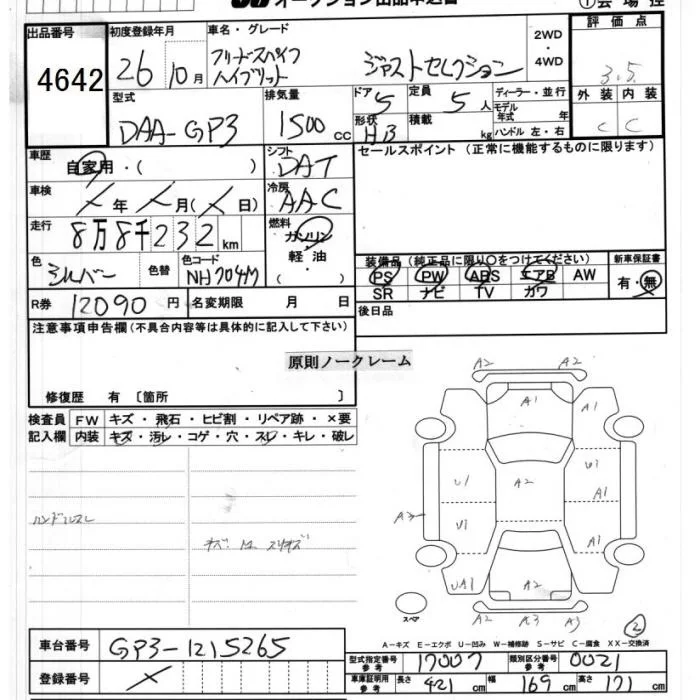 オークション出品申込書
出品番号 初度登録年月 車名・グレード 2WD ・ 4WD 評価点
4642 26 10月 フリードスパイク ハイブリット ジャストセレクション 3.5
型式 排気量 ドア 5 定員 5人 ディーラー・並行 外装 内装
DAA-GP3 1500cc 形状 HB 積載 kg モデル年式 年 ハンドル 左・右 C C
車歴 自家用・( ) シフト DAT セールスポイント (正常に機能するものに限ります)
車検 ╱年 ╱月(╱日) 冷房 AAC
走行 8万8千232km 燃料 ガソリン・軽油 ( )
色 シルバー 色替 色コード NH704M 装備品 (純正品に限り〇をつけてください) 新車保証書
PS PW ABS エアB AW 有・無
SR ナビ TV カワ
R券 12090円 名変期限 月 日 後日品
注意事項申告欄(不具合内容等は具体的に記入して下さい)
原則ノークレーム
修復歴 有 〔箇所 〕
検査員 FW キズ・飛石・ヒビ割・リペア跡・×要
記入欄 内装 キズ・汚レ・コゲ・穴・スレ・キレ・破レ
ハンドルスレ
A2 A2
A1 A1
U1 A2 U1
A1
A2 U1 A1
UA1 A2
スペア A2 A3 A3
②
A-キズ E-エクボ U-凹み W-補修跡 S-サビ C-腐食 XX-交換済
車台番号 GP3-1215265
登録番号 ╱
型式指定番号 参考 17007 類別区分番号 参考 0021
車庫証明用 参考 長さ 421cm 幅 169cm 高さ 171cm